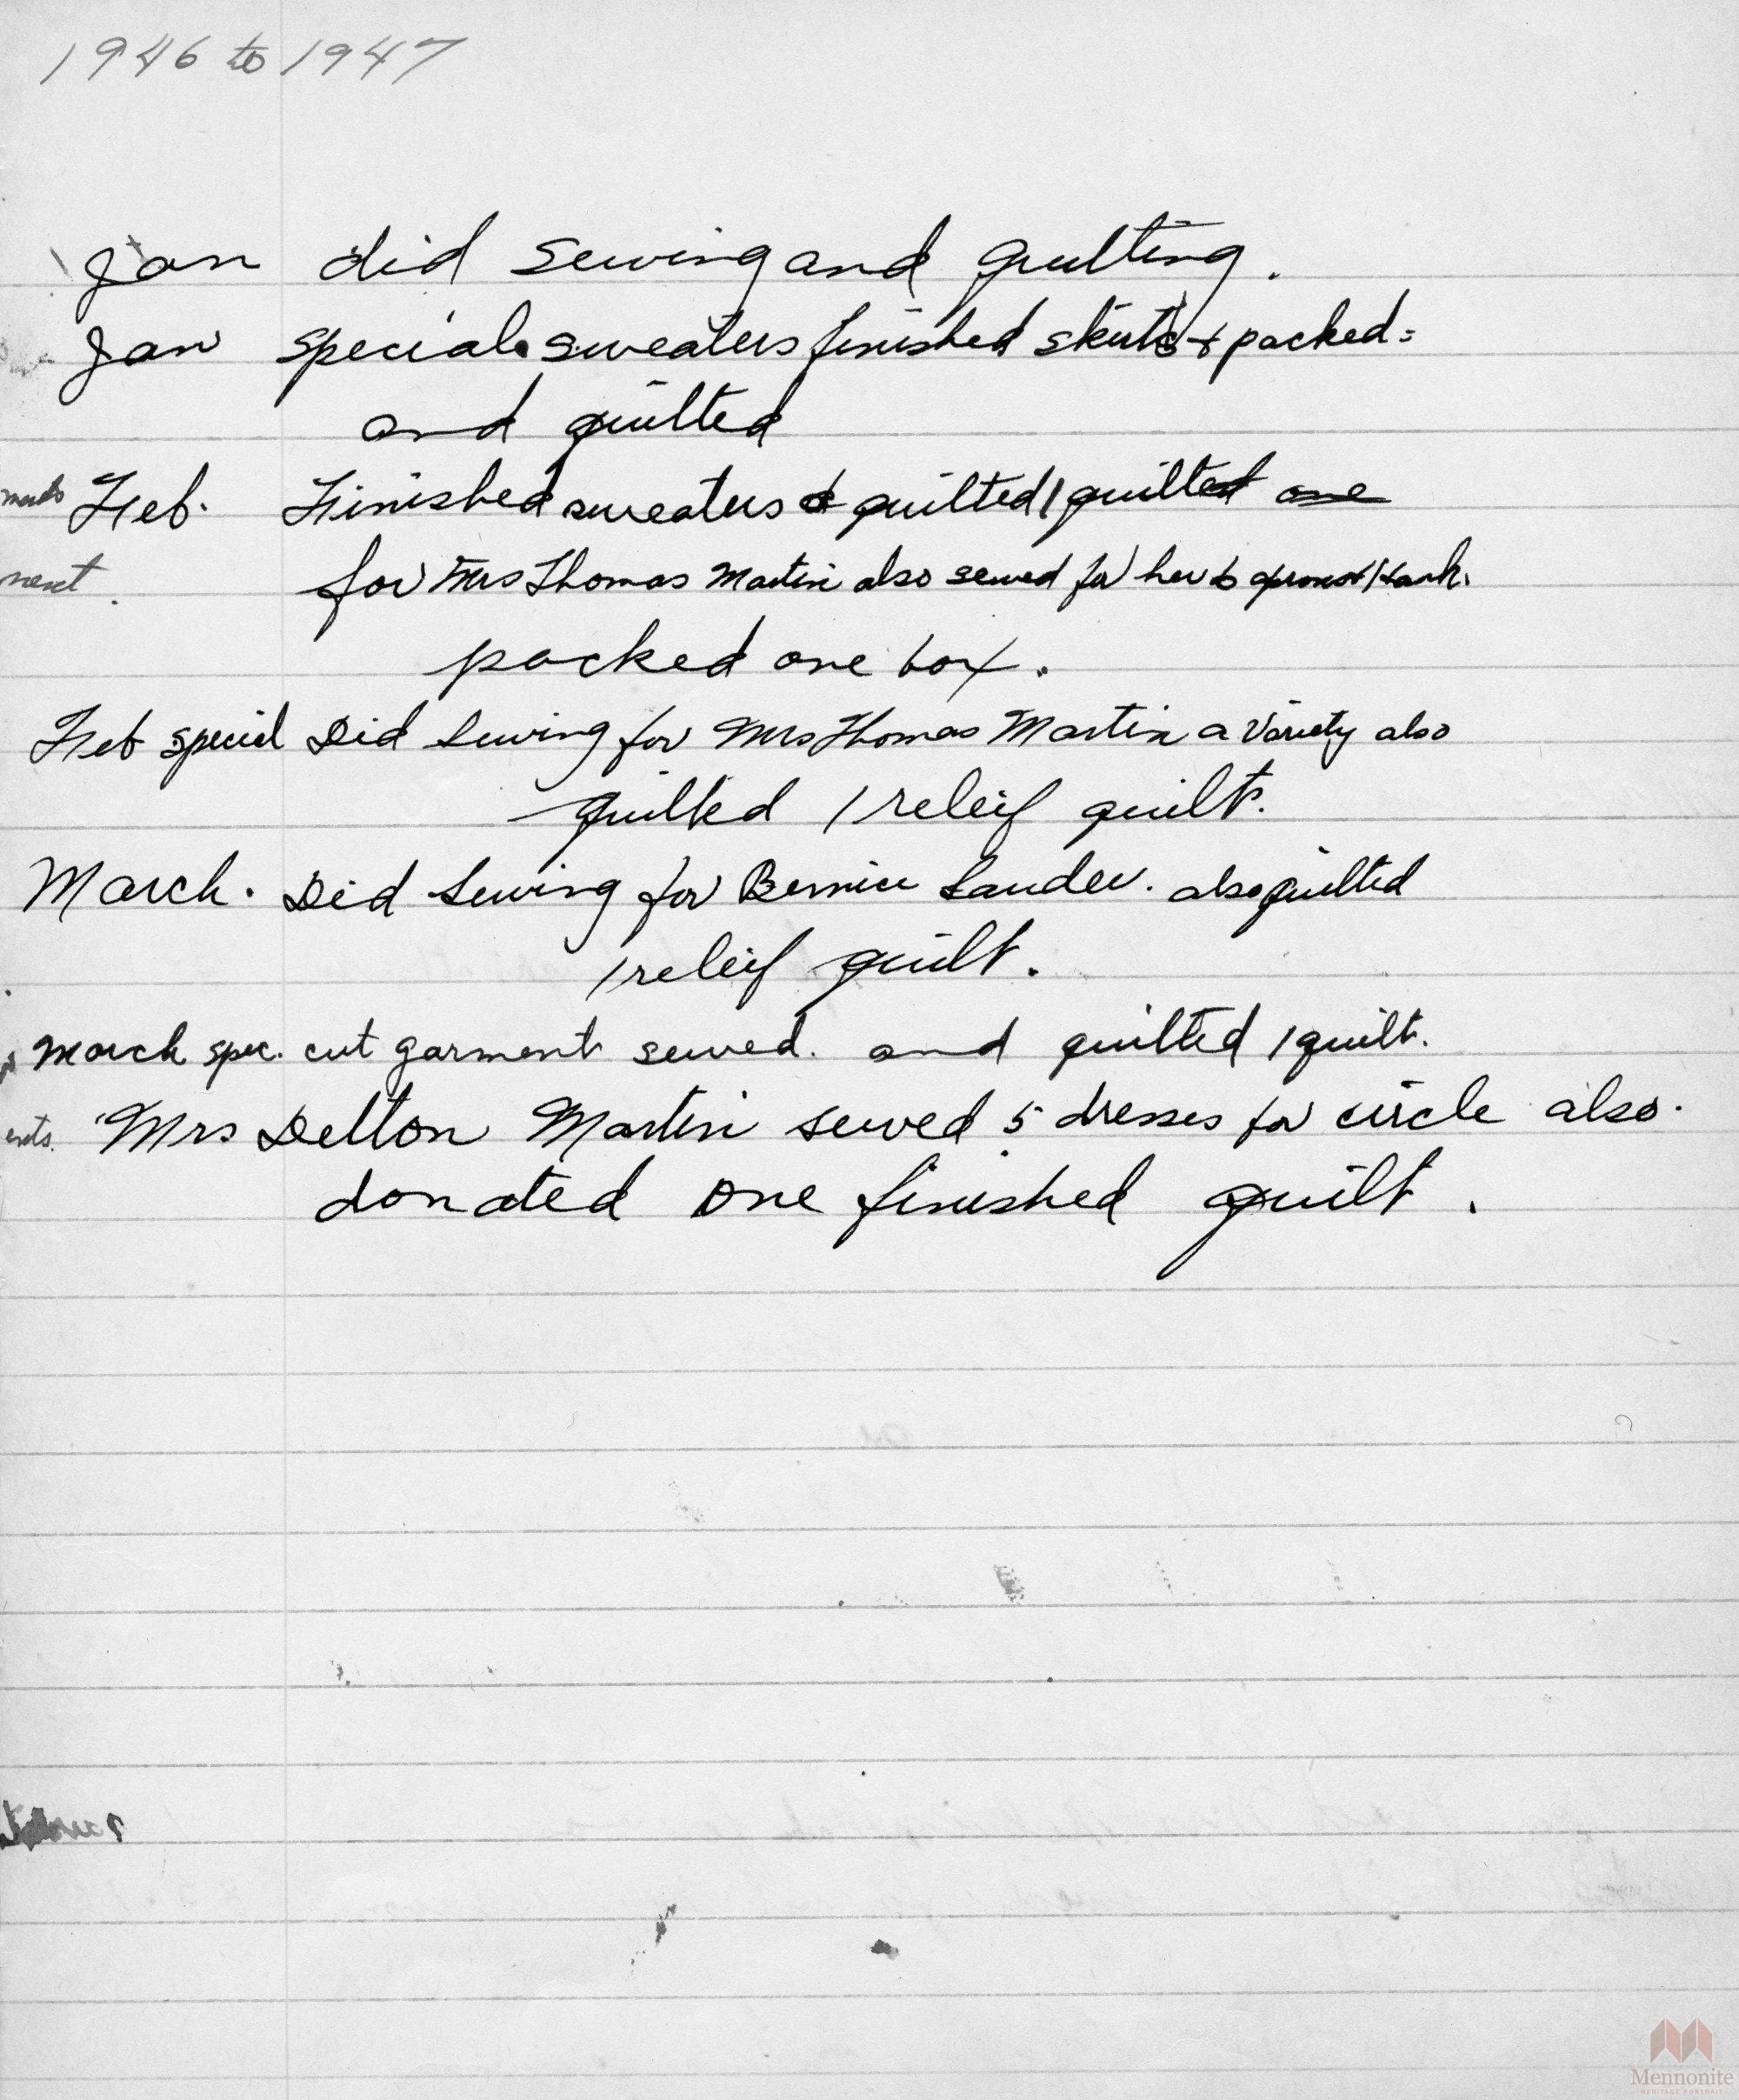 1946 to 1947
Jan did sewing and quilting.
Jan special sweaters finished skirts + packed
and quilted
Feb. Finished sweaters & quilted 1 quilt one
for Mrs Thomas Martin also sewed for her 6
next
packed one box.
Feb special Did sewing for Mrs Thomas Martin a variety also
quilted 1 releif quilt.
March. Did sewing for Bernice Lauder. also quilted
1 releif quilt.
March spec. cut garment sewed. and quilted 1 quilt.
Mrs Delton Martin sewed 5 dresses for circle also.
donated one finished quilt.
Mennonite